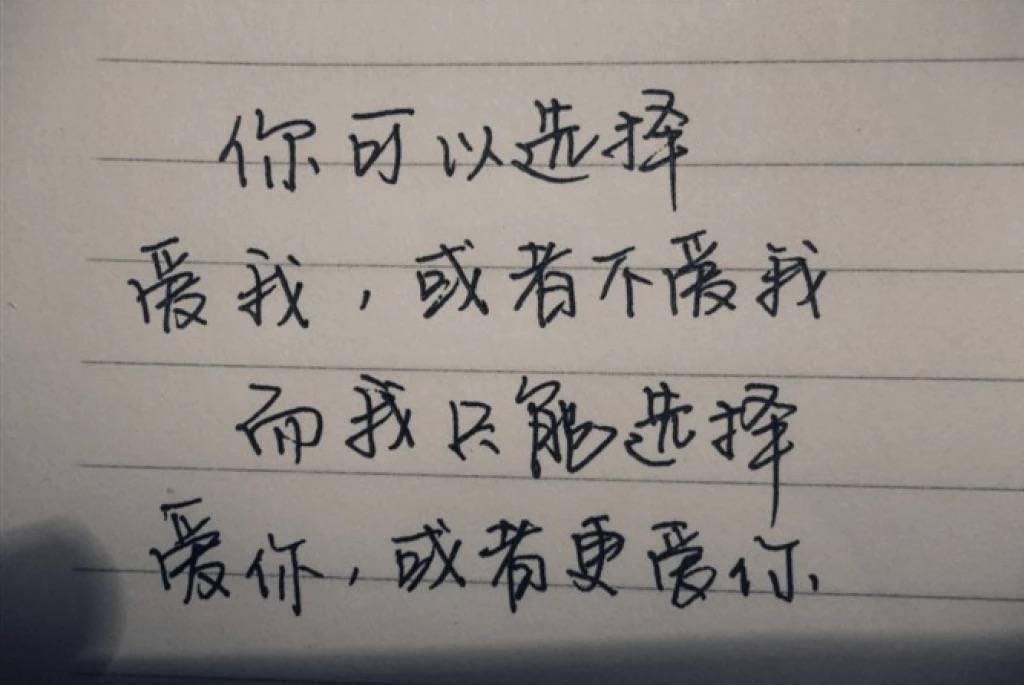 你可以选择
爱我，或者不爱我
而我只能选择
爱你，或者更爱你.